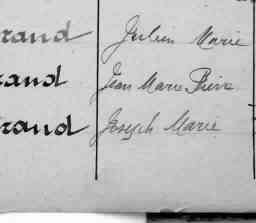 rand Julien Marie
rand Jean Marie Pierre
rand Joseph Marie